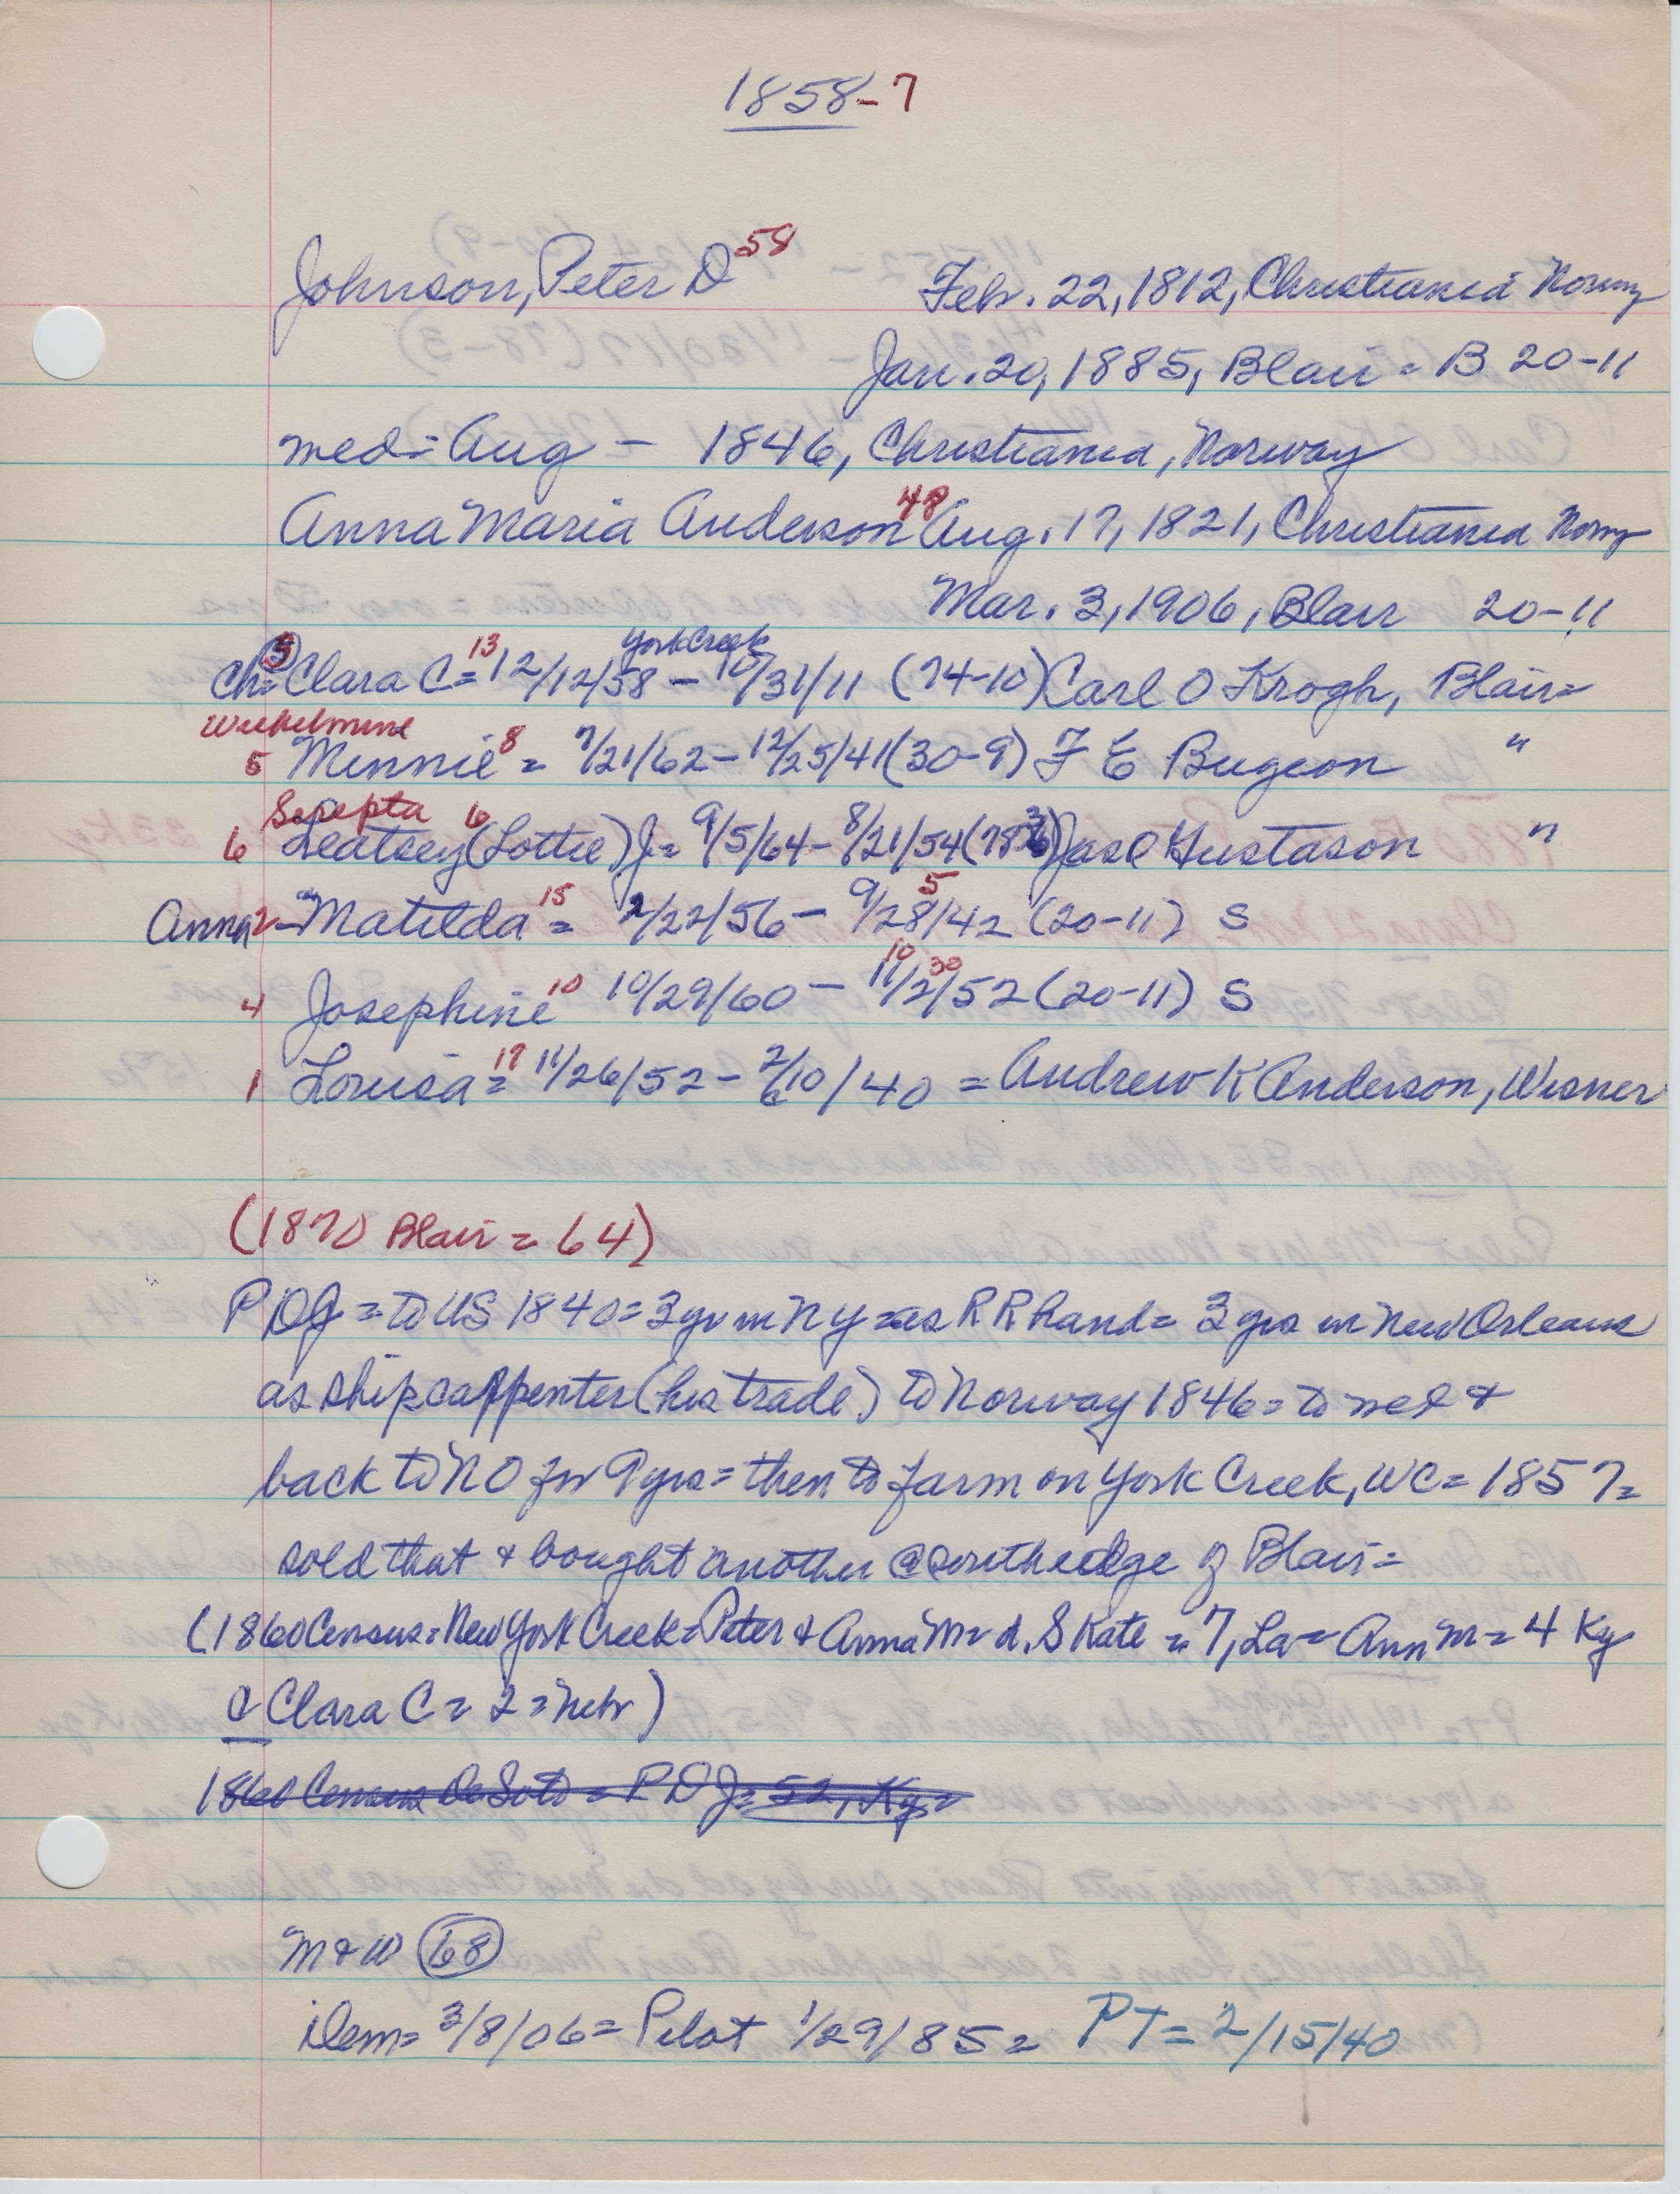 1858-7
Johnson, Peter D 58 Feb. 22, 1812, Christiania Norwy
Jan. 20, 1885, Blair = B 20-11
med = Aug - 1846, Christiania, Norway
Anna Maria Anderson 48 Aug. 17, 1821, Christiania Norwy
Mar. 3, 1906, Blair 20-11
York Creek
Ch= 3 Clara C = 13 12/12/58 - 10/31/11 (74-10) Carl O Krogh, Blair=
5 Minnie 8 = 7/21/62 - 12/25/41 (30-9) F E Bugeon "
Serepta 6
6 Leatsey (Lottie) J = 9/5/64 - 8/21/54 Jas O Gustason "
Anna 2 - Matilda 15 = 2/22/56 - 9/28/42 5 (20-11) S
4 Josephine 10 10/29/60 - 11/2/52 10 30 (20-11) S
1 Louisa = 17 11/26/52 - 2/10/40 = Andrew K Anderson, Wisner
(1870 Blair = 64)
P D J = to US 1840 = 3 yr in N Y = as R R hand = 3 yrs in New Orleans
as ship carpenter (his trade) to Norway 1846 = to med &
back to N O for 9 yrs = then to farm on York Creek, WC = 1857 =
sold that & bought another @ south edge of Blair =
(1860 Census = New York Creek = Peter & Anna M = d. S Kate = 7, La = Ann M = 4 Ky
& Clara C = 2 = Nebr)
1860 Census De Soto = P D J = 52, Ky =
M & W 68
Dem = 3/8/06 = Pilot 1/29/85 = PT = 2/15/40